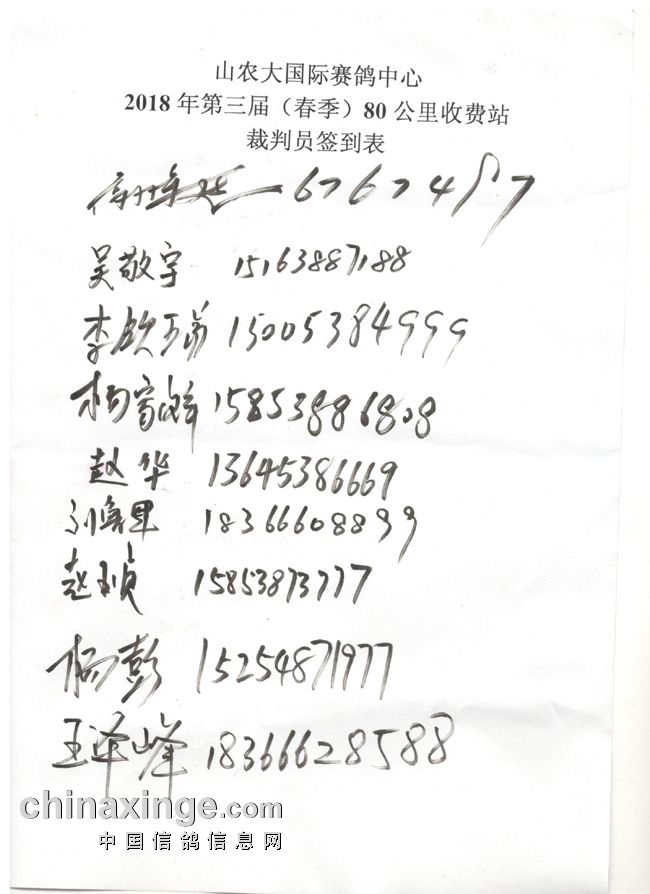 山农大国际赛鸽中心
2018年第三届（春季）80公里收费站
裁判员签到表
6767487
吴敬宇 15163887188
李 15005384999
杨 15853886808
赵华 13645386669
刘 18366608899
赵 15853873777
杨彭 15254871977
王泽峰 18366628588
chinaxinge.com
中国信鸽信息网